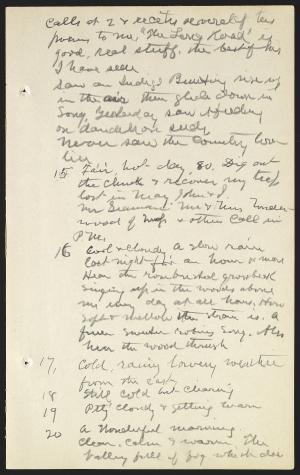 calls at 2 & recites several of his
poems to me, "The Long Road" is
good, real stuff, the best of his
I have seen.
Saw an Indigo Bunting rise up
in the air then glide down in
song. Yesterday saw it feeding
on dandelion seeds
Never saw the country love
lier
15 Fair, hot day, 80. Dig out
the chuck & recover my trap
lost in May
Mr & Mrs Under
wood of & others call in
P.M.
16 Cool & cloudy a slow rain
last night for an hour or more
Hear the rose breasted grosbeak
singing up in the woods above
me, every day at all hours, How
soft & mellow the strain is. A
finer sweeter robin's song. Also
hear the wood thrush
17, Cold, rainy lowery weather
from the East
18 Still cold but clearing
19 Ptly cloudy & getting warm
20 A wonderful morning.
clean, calm & warm. The
valley full of fog which